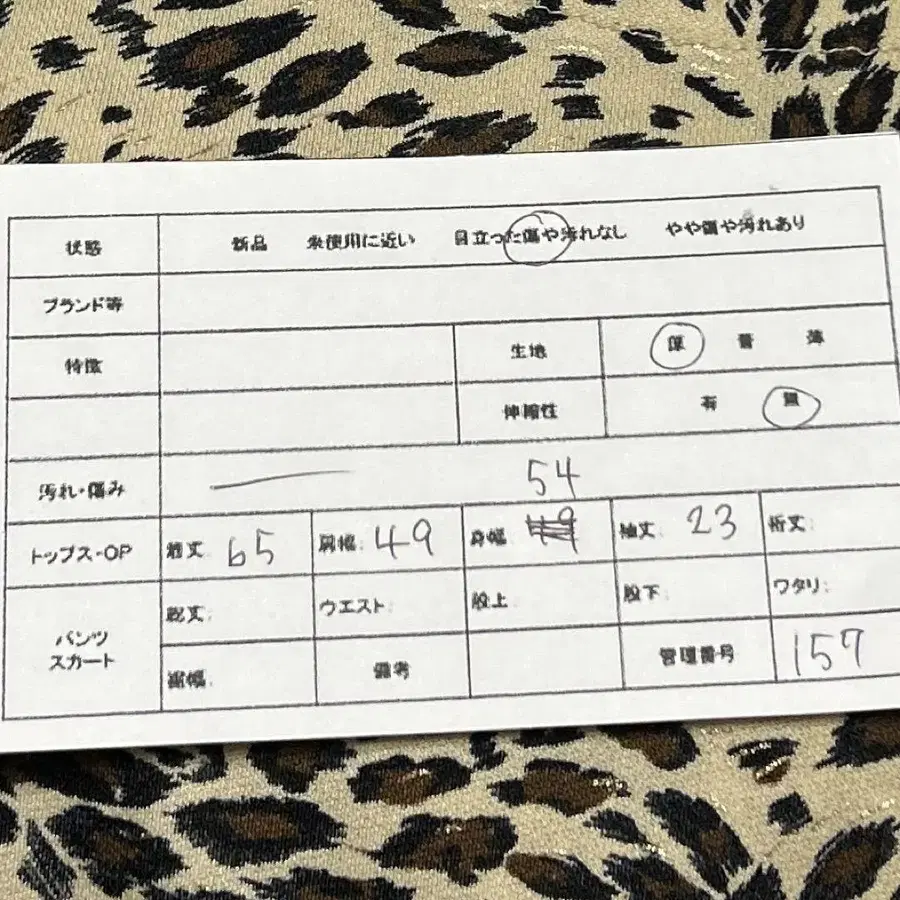 状態 新品 未使用に近い 目立った傷や汚れなし やや傷や汚れあり
ブランド等
特徴 生地 厚 普 薄
伸縮性 有 無
汚れ・傷み
54
トップス・OP 着丈: 65 肩幅: 49 身幅: 49 袖丈: 23 裄丈:
パンツ
スカート
総丈: ウエスト: 股上: 股下: ワタリ:
裾幅: 備考 管理番号 157